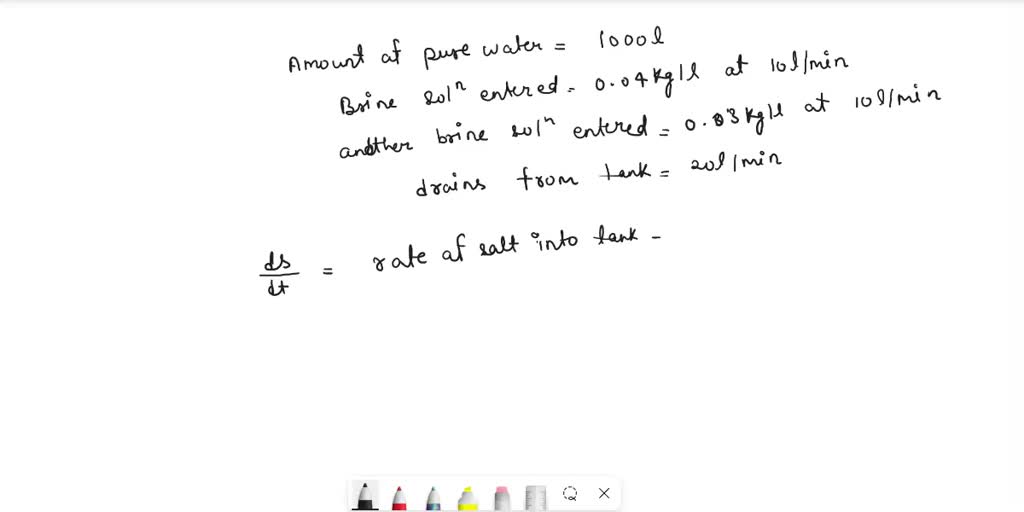 Amount of pure water = 1000l
Brine solⁿ entered = 0.04 kg/l at 10l/min
another brine solⁿ entered = 0.03 kg/l at 10l/min
drains from tank = 20l/min
ds/dt = rate of salt into tank -